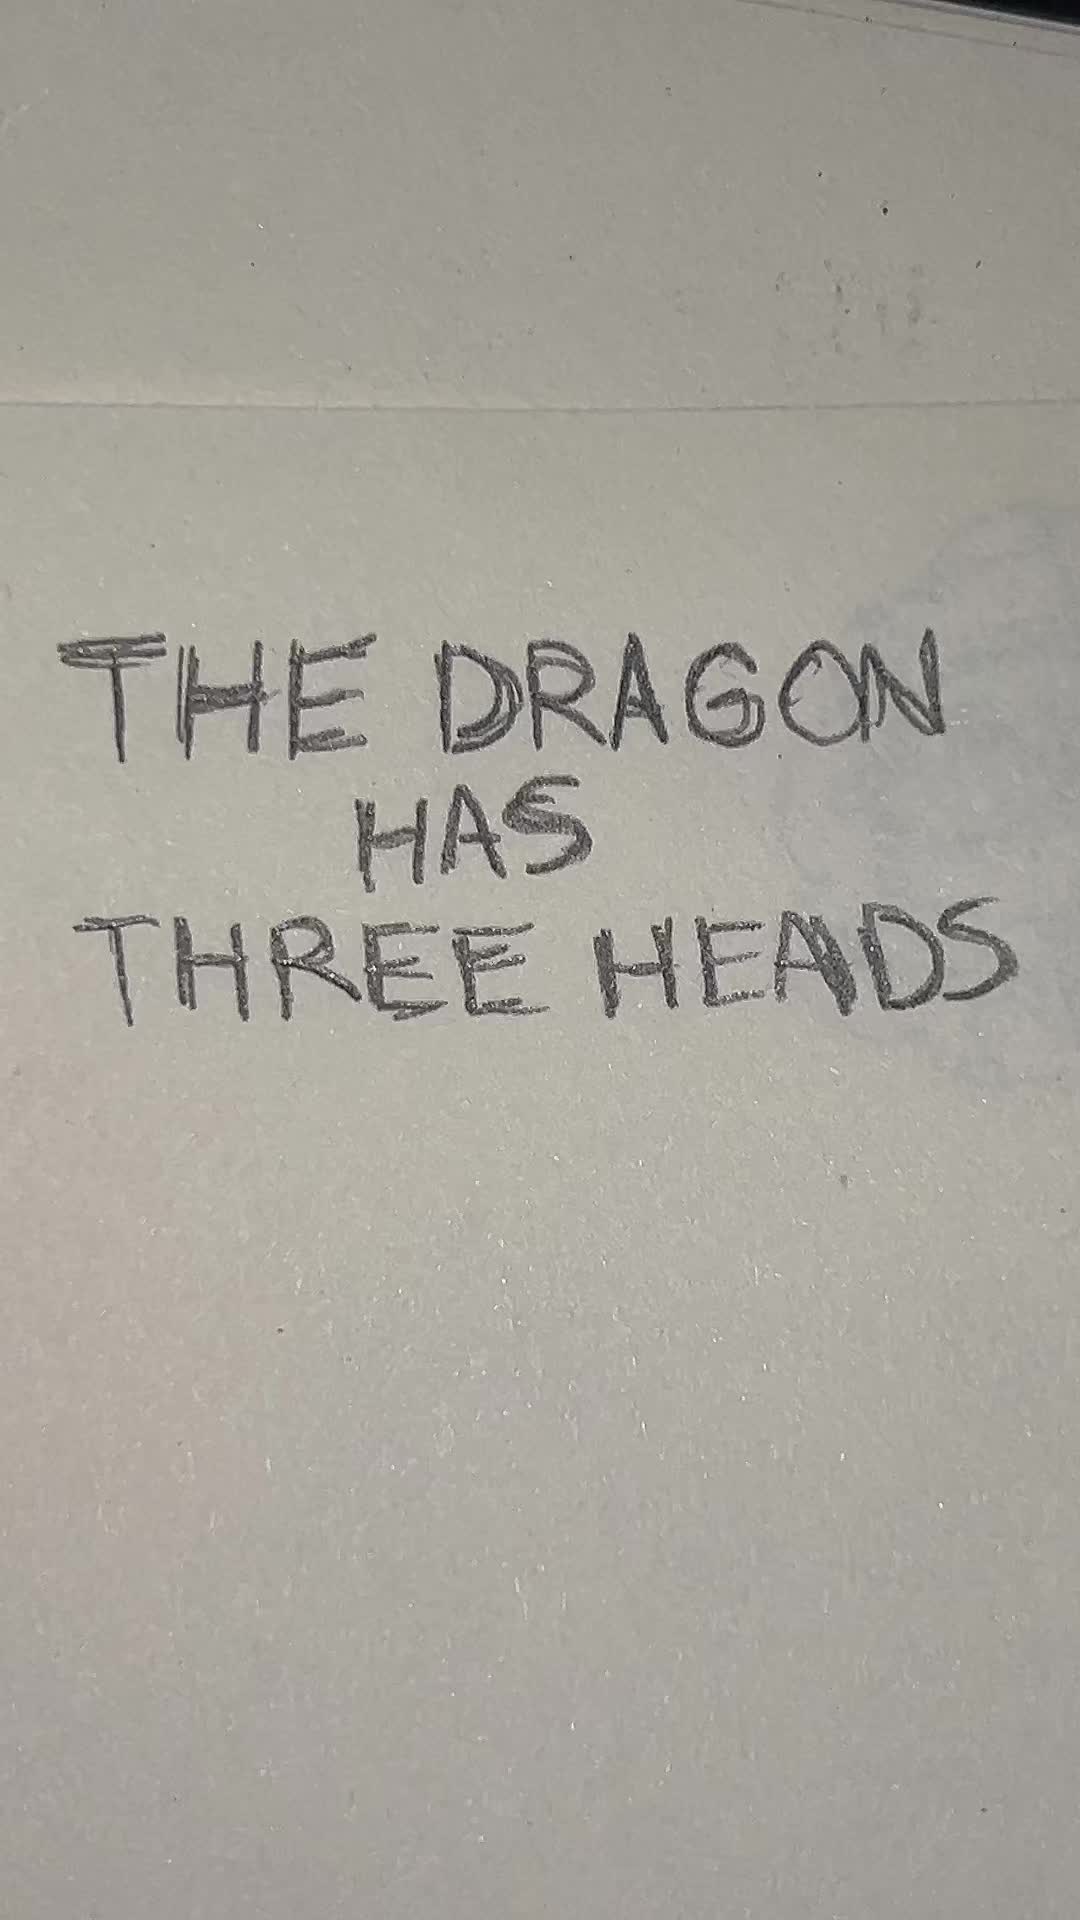 THE DRAGON
HAS
THREE HEADS